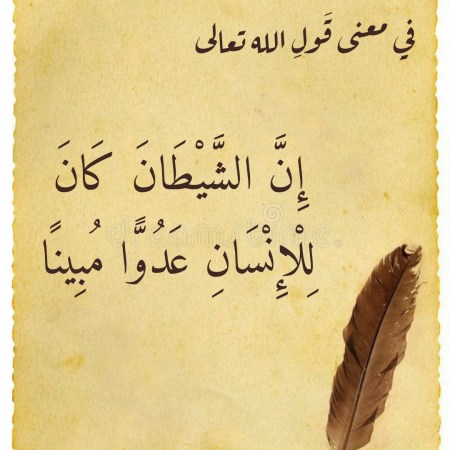 في معنى قَولِ الله تعالى
إِنَّ الشَّيْطَانَ كَانَ
لِلْإِنْسَانِ عَدُوًّا مُبِينًا